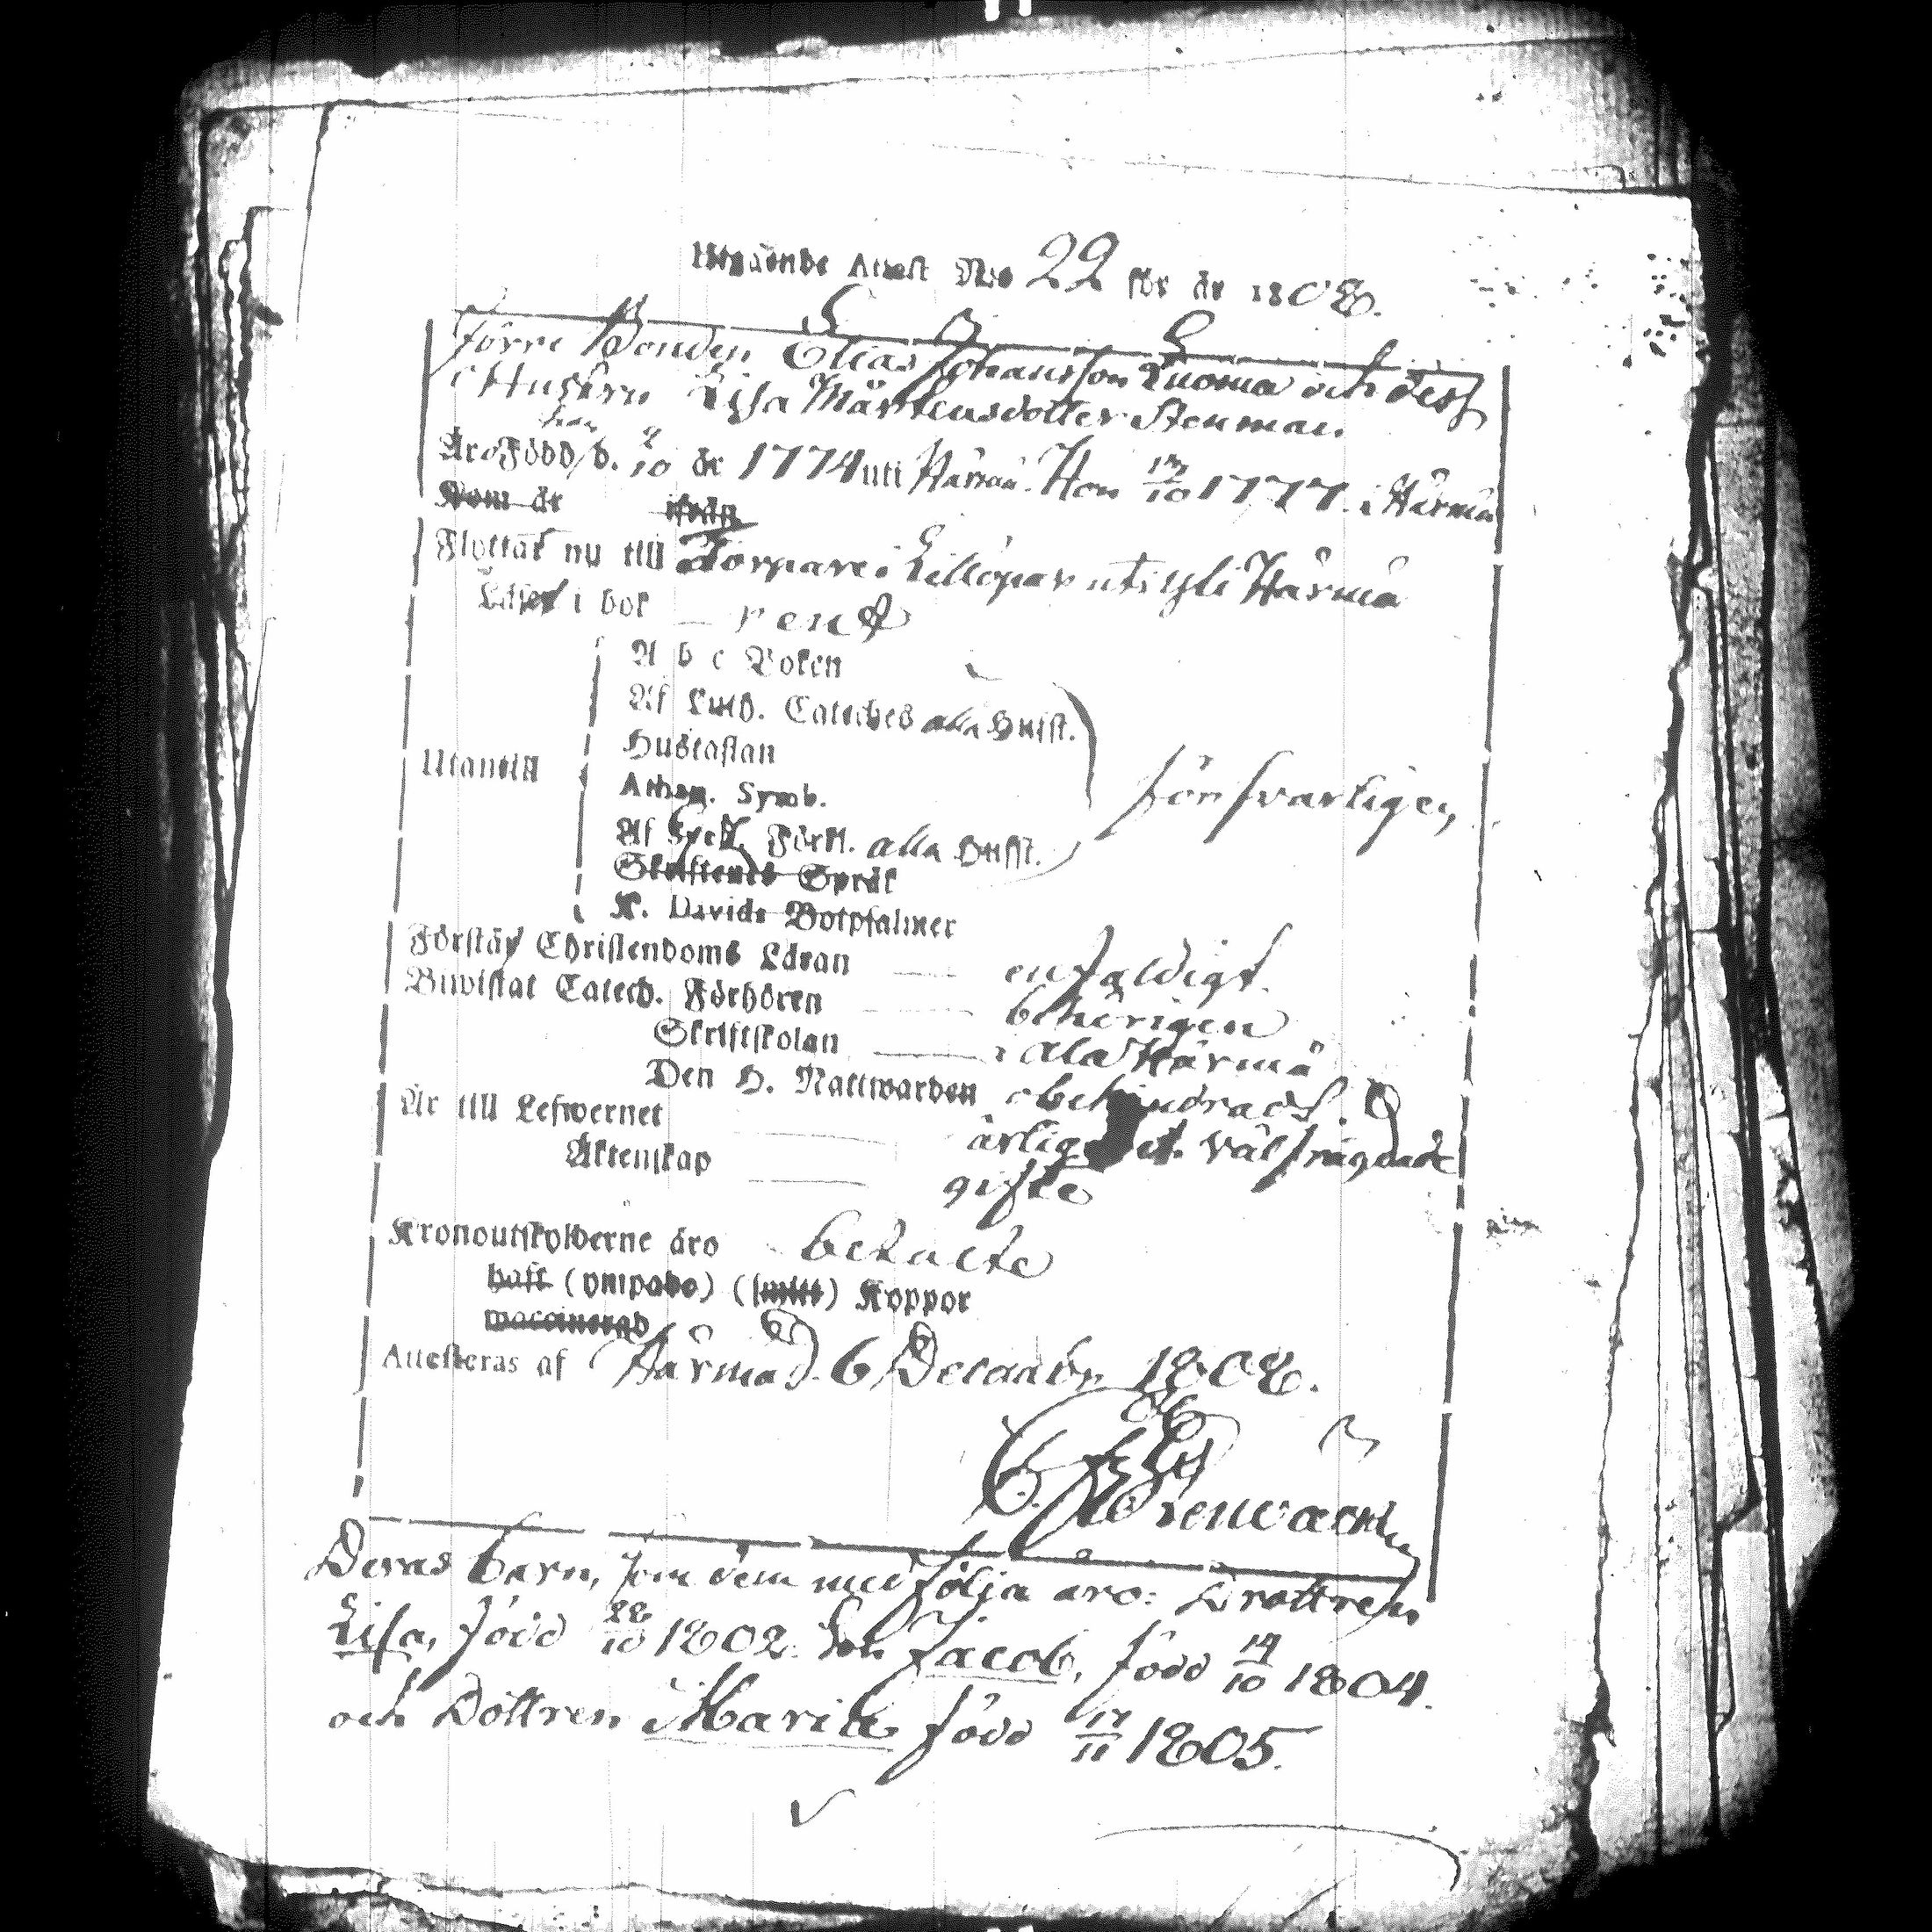 Utgående Attest N:o 22 för år 1808.
Förre Bonden Elias Johansson Luoma och dess
Hustru Lisa Mårtensdotter Stenman
han
Äro Född d. 2/10 år 1774 uti Härmä. Hon 13/10 1777. i Härmä
Kom år ifrån
Flyttar nu till Torpare i Lillöpar uti Yli Härmä
Läser i bok rent
A b c Boken
Af Luth. Cateches alla Hufst.
Hustaflan
Utantill
Athan. Symb.
försvarligen
Af Förkl. alla Hufst.
Skriftenes Språk
K. Davids Botpsalmer
Förstår Christendoms Läran enfaldigt.
Biwistat Catech. Förhören behörigen
Skriftskolan i Ala Härmä
Den H. Nattwarden obehindradt.
Är till Lefwernet ärlige et. välfrägdade
Äktenskap gifte
Kronoutskylderne äro betalte
haft (ympade) Koppor
waccinerad
Attesteras af Härmä d. 6 Decembr 1808.
Deras barn, som dem medfölja äro: Dottren
Lisa, född 28/10 1802. Son Jacob, född 14/10 1804.
och Dottren Maria född 17/11 1805.